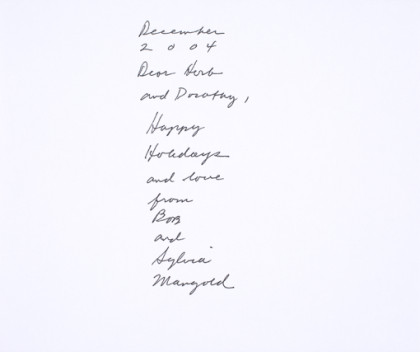 December
2004
Dear Herb
and Dorothy,
Happy
Holidays
and love
from
Bob
and
Sylvia
Mangold